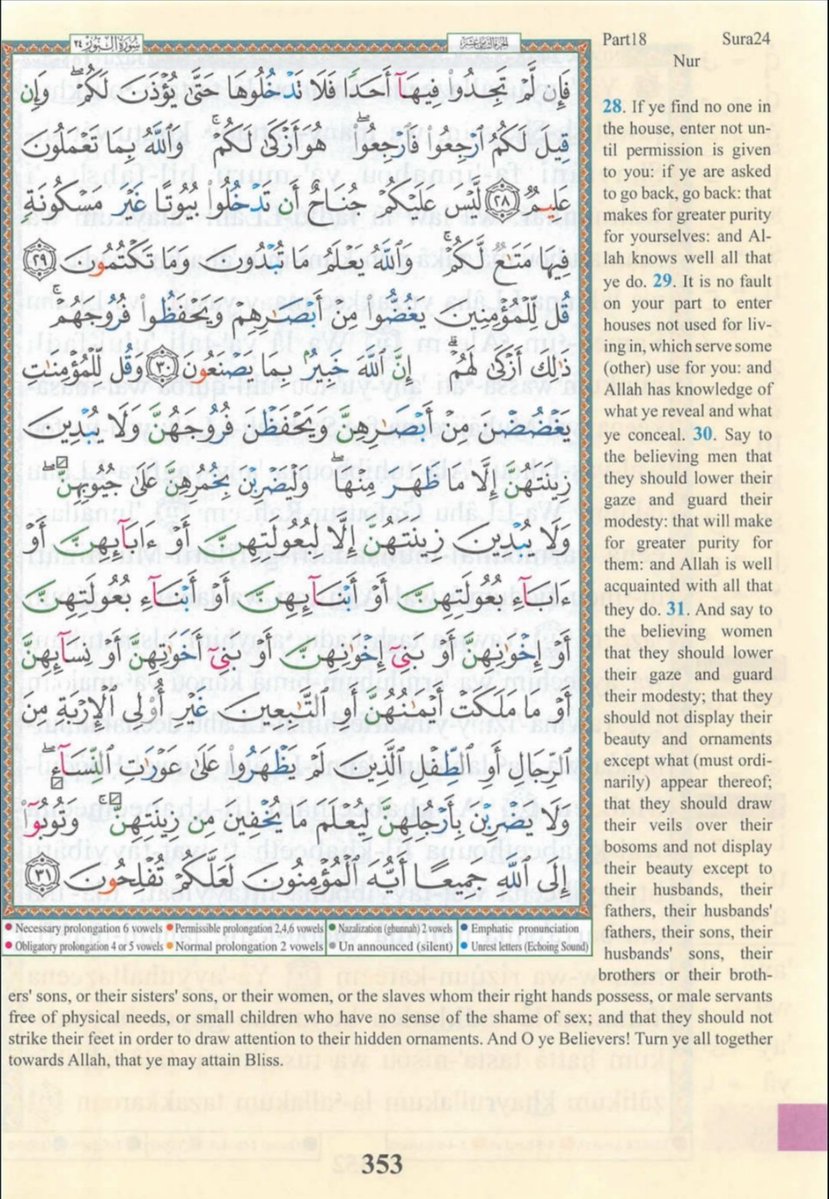 سُورَةُ النُّورِ ٢٤
الجزء الثامن عشر
Part18 Sura24
Nur
فَإِن لَّمْ تَجِدُوا۟ فِيهَآ أَحَدًا فَلَا تَدْخُلُوهَا حَتَّىٰ يُؤْذَنَ لَكُمْ ۖ وَإِن
قِيلَ لَكُمُ ٱرْجِعُوا۟ فَٱرْجِعُوا۟ ۖ هُوَ أَزْكَىٰ لَكُمْ ۚ وَٱللَّهُ بِمَا تَعْمَلُونَ
عَلِيمٌ ٢٨ لَّيْسَ عَلَيْكُمْ جُنَاحٌ أَن تَدْخُلُوا۟ بُيُوتًا غَيْرَ مَسْكُونَةٍ
فِيهَا مَتَـٰعٌ لَّكُمْ ۚ وَٱللَّهُ يَعْلَمُ مَا تُبْدُونَ وَمَا تَكْتُمُونَ ٢٩
قُل لِّلْمُؤْمِنِينَ يَغُضُّوا۟ مِنْ أَبْصَـٰرِهِمْ وَيَحْفَظُوا۟ فُرُوجَهُمْ ۚ
ذَٰلِكَ أَزْكَىٰ لَهُمْ ۗ إِنَّ ٱللَّهَ خَبِيرٌۢ بِمَا يَصْنَعُونَ ٣٠ وَقُل لِّلْمُؤْمِنَـٰتِ
يَغْضُضْنَ مِنْ أَبْصَـٰرِهِنَّ وَيَحْفَظْنَ فُرُوجَهُنَّ وَلَا يُبْدِينَ
زِينَتَهُنَّ إِلَّا مَا ظَهَرَ مِنْهَا ۖ وَلْيَضْرِبْنَ بِخُمُرِهِنَّ عَلَىٰ جُيُوبِهِنَّ ۖ
وَلَا يُبْدِينَ زِينَتَهُنَّ إِلَّا لِبُعُولَتِهِنَّ أَوْ ءَابَآئِهِنَّ أَوْ
ءَابَآءِ بُعُولَتِهِنَّ أَوْ أَبْنَآئِهِنَّ أَوْ أَبْنَآءِ بُعُولَتِهِنَّ
أَوْ إِخْوَٰنِهِنَّ أَوْ بَنِىٓ إِخْوَٰنِهِنَّ أَوْ بَنِىٓ أَخَوَٰتِهِنَّ أَوْ نِسَآئِهِنَّ
أَوْ مَا مَلَكَتْ أَيْمَـٰنُهُنَّ أَوِ ٱلتَّـٰبِعِينَ غَيْرِ أُو۟لِى ٱلْإِرْبَةِ مِنَ
ٱلرِّجَالِ أَوِ ٱلطِّفْلِ ٱلَّذِينَ لَمْ يَظْهَرُوا۟ عَلَىٰ عَوْرَٰتِ ٱلنِّسَآءِ ۖ
وَلَا يَضْرِبْنَ بِأَرْجُلِهِنَّ لِيُعْلَمَ مَا يُخْفِينَ مِن زِينَتِهِنَّ ۚ وَتُوبُوٓا۟
إِلَى ٱللَّهِ جَمِيعًا أَيُّهَ ٱلْمُؤْمِنُونَ لَعَلَّكُمْ تُفْلِحُونَ ٣١
• Necessary prolongation 6 vowels • Permissible prolongation 2,4,6 vowels • Nazalization (ghunnah) 2 vowels • Emphatic pronunciation
• Obligatory prolongation 4 or 5 vowels • Normal prolongation 2 vowels • Un announced (silent) • Unrest letters (Echoing Sound)
28. If ye find no one in
the house, enter not un-
til permission is given
to you: if ye are asked
to go back, go back: that
makes for greater purity
for yourselves: and Al-
lah knows well all that
ye do. 29. It is no fault
on your part to enter
houses not used for liv-
ing in, which serve some
(other) use for you: and
Allah has knowledge of
what ye reveal and what
ye conceal. 30. Say to
the believing men that
they should lower their
gaze and guard their
modesty: that will make
for greater purity for
them: and Allah is well
acquainted with all that
they do. 31. And say to
the believing women
that they should lower
their gaze and guard
their modesty; that they
should not display their
beauty and ornaments
except what (must ordi-
narily) appear thereof;
that they should draw
their veils over their
bosoms and not display
their beauty except to
their husbands, their
fathers, their husbands'
fathers, their sons, their
husbands' sons, their
brothers or their broth-
ers' sons, or their sisters' sons, or their women, or the slaves whom their right hands possess, or male servants
free of physical needs, or small children who have no sense of the shame of sex; and that they should not
strike their feet in order to draw attention to their hidden ornaments. And O ye Believers! Turn ye all together
towards Allah, that ye may attain Bliss.
353